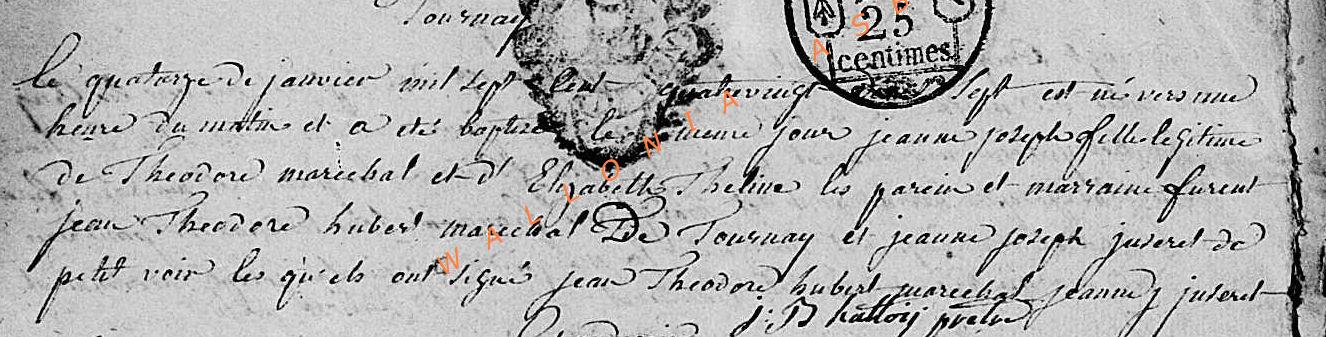 Tournay
25
centimes
le quatorze de janvier mil sept cent quatrevingt dix sept est né vers une
heure du matin et a eté baptisé le meme jour jeanne joseph fille legitime
de Theodore marechal et d' Elizabeth Theline les parein et marraine furent
jean Theodore hubert marechal De Tournay et jeanne joseph juseret de
petit voir les qu'els ont signé jean Theodore hubert marechal jeanne j juseret
j: B pretre
WALLONIA ASBL